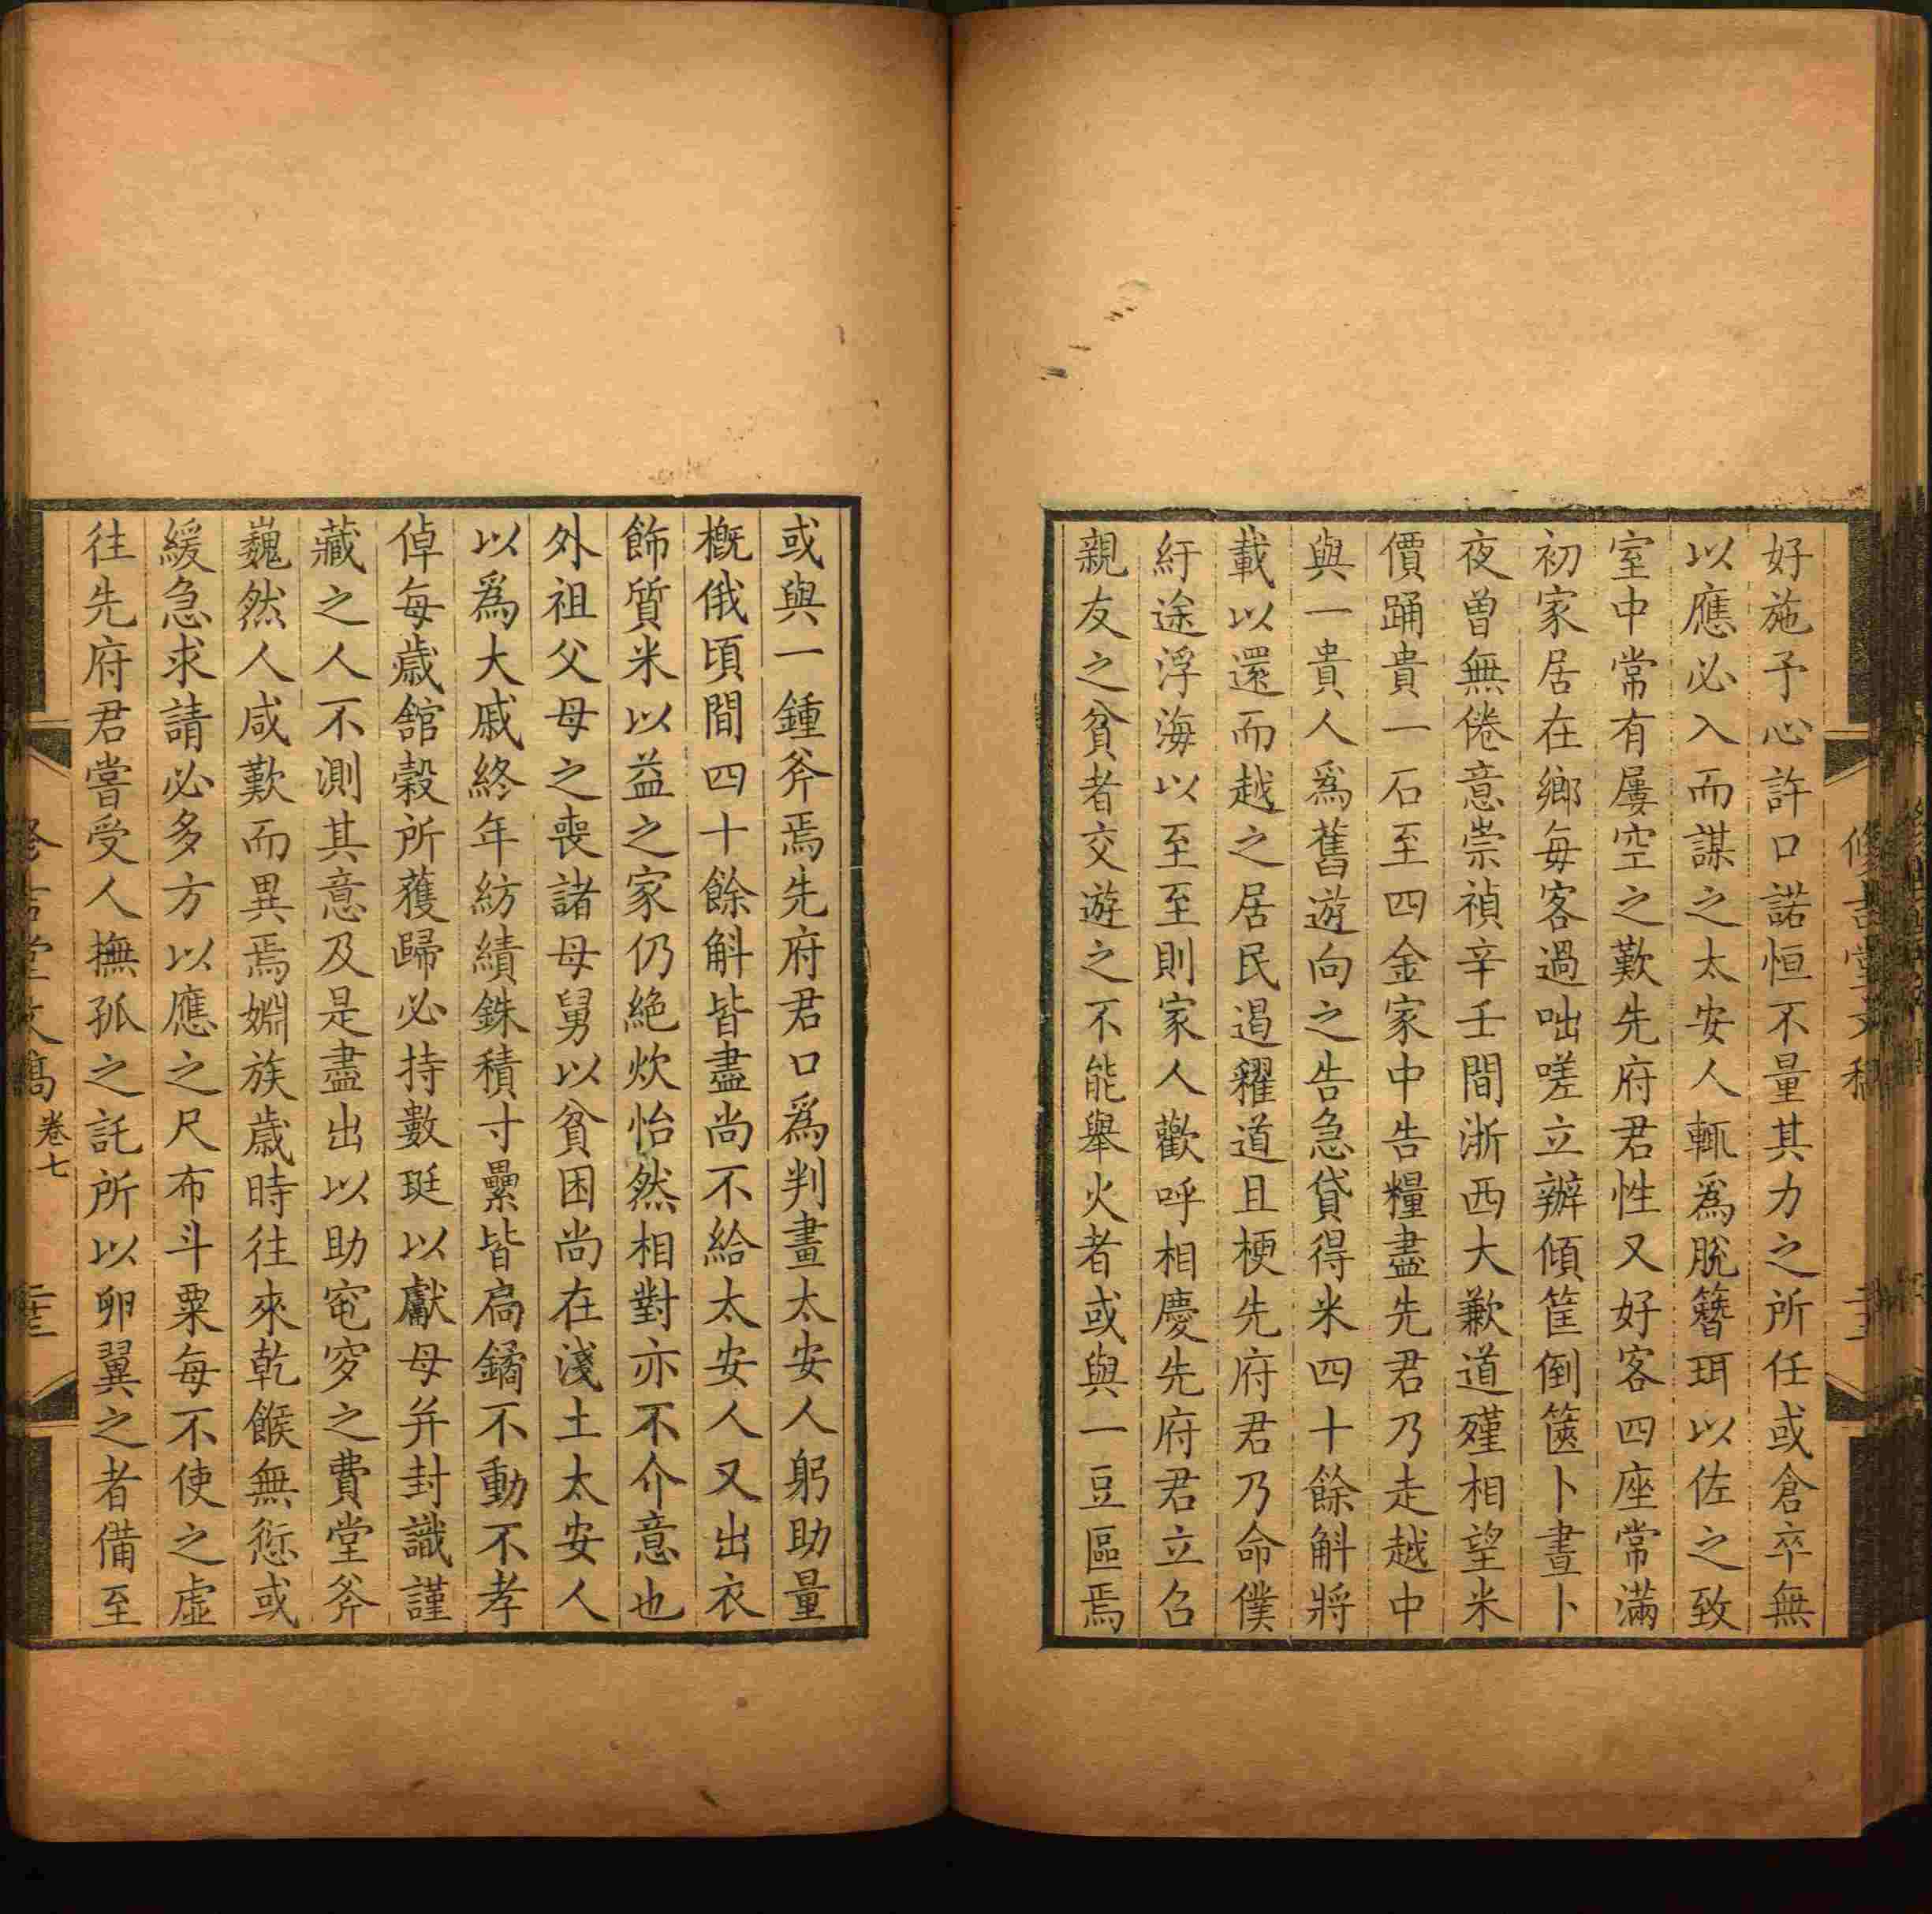 好施予心許口諾恒不量其力之所任或倉卒無
以應必入而謀之太安人輒爲脫簪珥以佐之致
室中常有屢空之歎先府君性又好客四座常滿
初家居在鄉每客過咄嗟立辦傾筐倒篋卜晝卜
夜曾無倦意崇禎辛壬間浙西大歉道殣相望米
價踊貴一石至四金家中告糧盡先君乃走越中
與一貴人爲舊遊向之告急貸得米四十餘斛將
載以還而越之居民遏糴道且梗先府君乃命僕
紆途浮海以至至則家人歡呼相慶先府君立召
親友之貧者交遊之不能舉火者或與一豆區焉
或與一鍾斧焉先府君口爲判畫太安人躬助量
概俄頃間四十餘斛皆盡尚不給太安人又出衣
飾質米以益之家仍絶炊怡然相對亦不介意也
外祖父母之喪諸母舅以貧困尚在淺土太安人
以爲大戚終年紡績銖積寸纍皆扃鐍不動不孝
倬每歲舘榖所獲歸必持數珽以獻母并封識謹
藏之人不測其意及是盡出以助窀穸之費堂斧
巍然人咸歎而異焉婣族歲時往來乾餱無愆或
緩急求請必多方以應之尺布斗粟每不使之虛
往先府君嘗受人撫孤之託所以卵翼之者備至
堂文稿 卷七